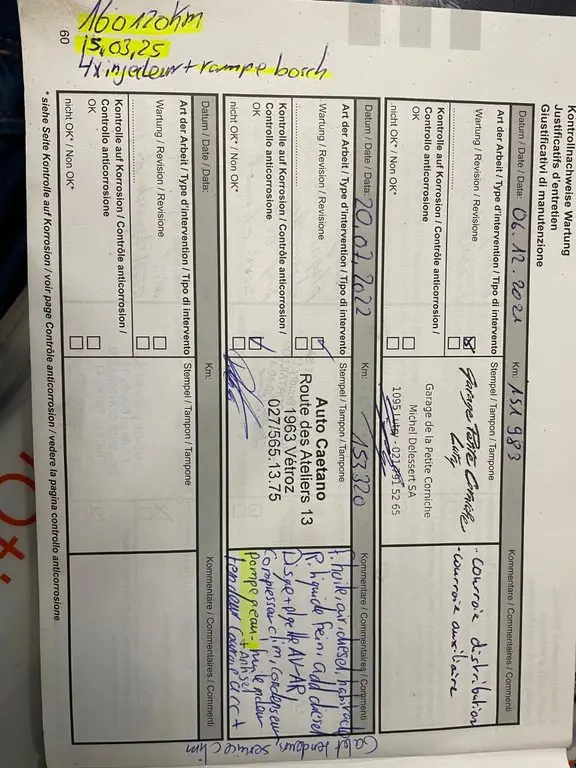 Kontrollnachweise Wartung
Justificatifs d'entretien
Giustificativi di manutenzione
Datum / Date / Data: 06.12.2021
Km: 151 983
Kommentare / Commentaires / Commenti
Art der Arbeit / Type d'intervention / Tipo di intervento
Stempel / Tampon / Tampone
Wartung / Revision / Revisione
Garage Petite Corniche
Lutry
- courroie distribution
- courroie auxiliaire
Kontrolle auf Korrosion / Contrôle anticorrosion /
Controllo anticorrosione
OK
nicht OK* / Non OK*
Garage de la Petite Corniche
Michel Delessert SA
1095 Lutry - 021 791 52 65
Datum / Date / Data: 20.07.2022
Km: 153320
Kommentare / Commentaires / Commenti
Art der Arbeit / Type d'intervention / Tipo di intervento
Stempel / Tampon / Tampone
Wartung / Revision / Revisione
Kontrolle auf Korrosion / Contrôle anticorrosion /
Controllo anticorrosione
OK
nicht OK* / Non OK*
Auto Caetano
Route des Ateliers 13
1963 Vétroz
027/565.13.75
huile, air, diesel, habitacle
liquide frein, add diesel
Disque + plaquette AV-AR
Compresseur clim, condenseur
pompe à eau
+ Antigel
tendeur
tendeur, service clim
Datum / Date / Data:
Km:
Kommentare / Commentaires / Commenti
Art der Arbeit / Type d'intervention / Tipo di intervento
Stempel / Tampon / Tampone
Wartung / Revision / Revisione
Kontrolle auf Korrosion / Contrôle anticorrosion /
Controllo anticorrosione
OK
nicht OK* / Non OK*
* siehe Seite Kontrolle auf Korrosion / voir page Contrôle anticorrosion / vedere la pagina controllo anticorrosione
60
160120km
15.03.25
4x injecteur + rampe bosch